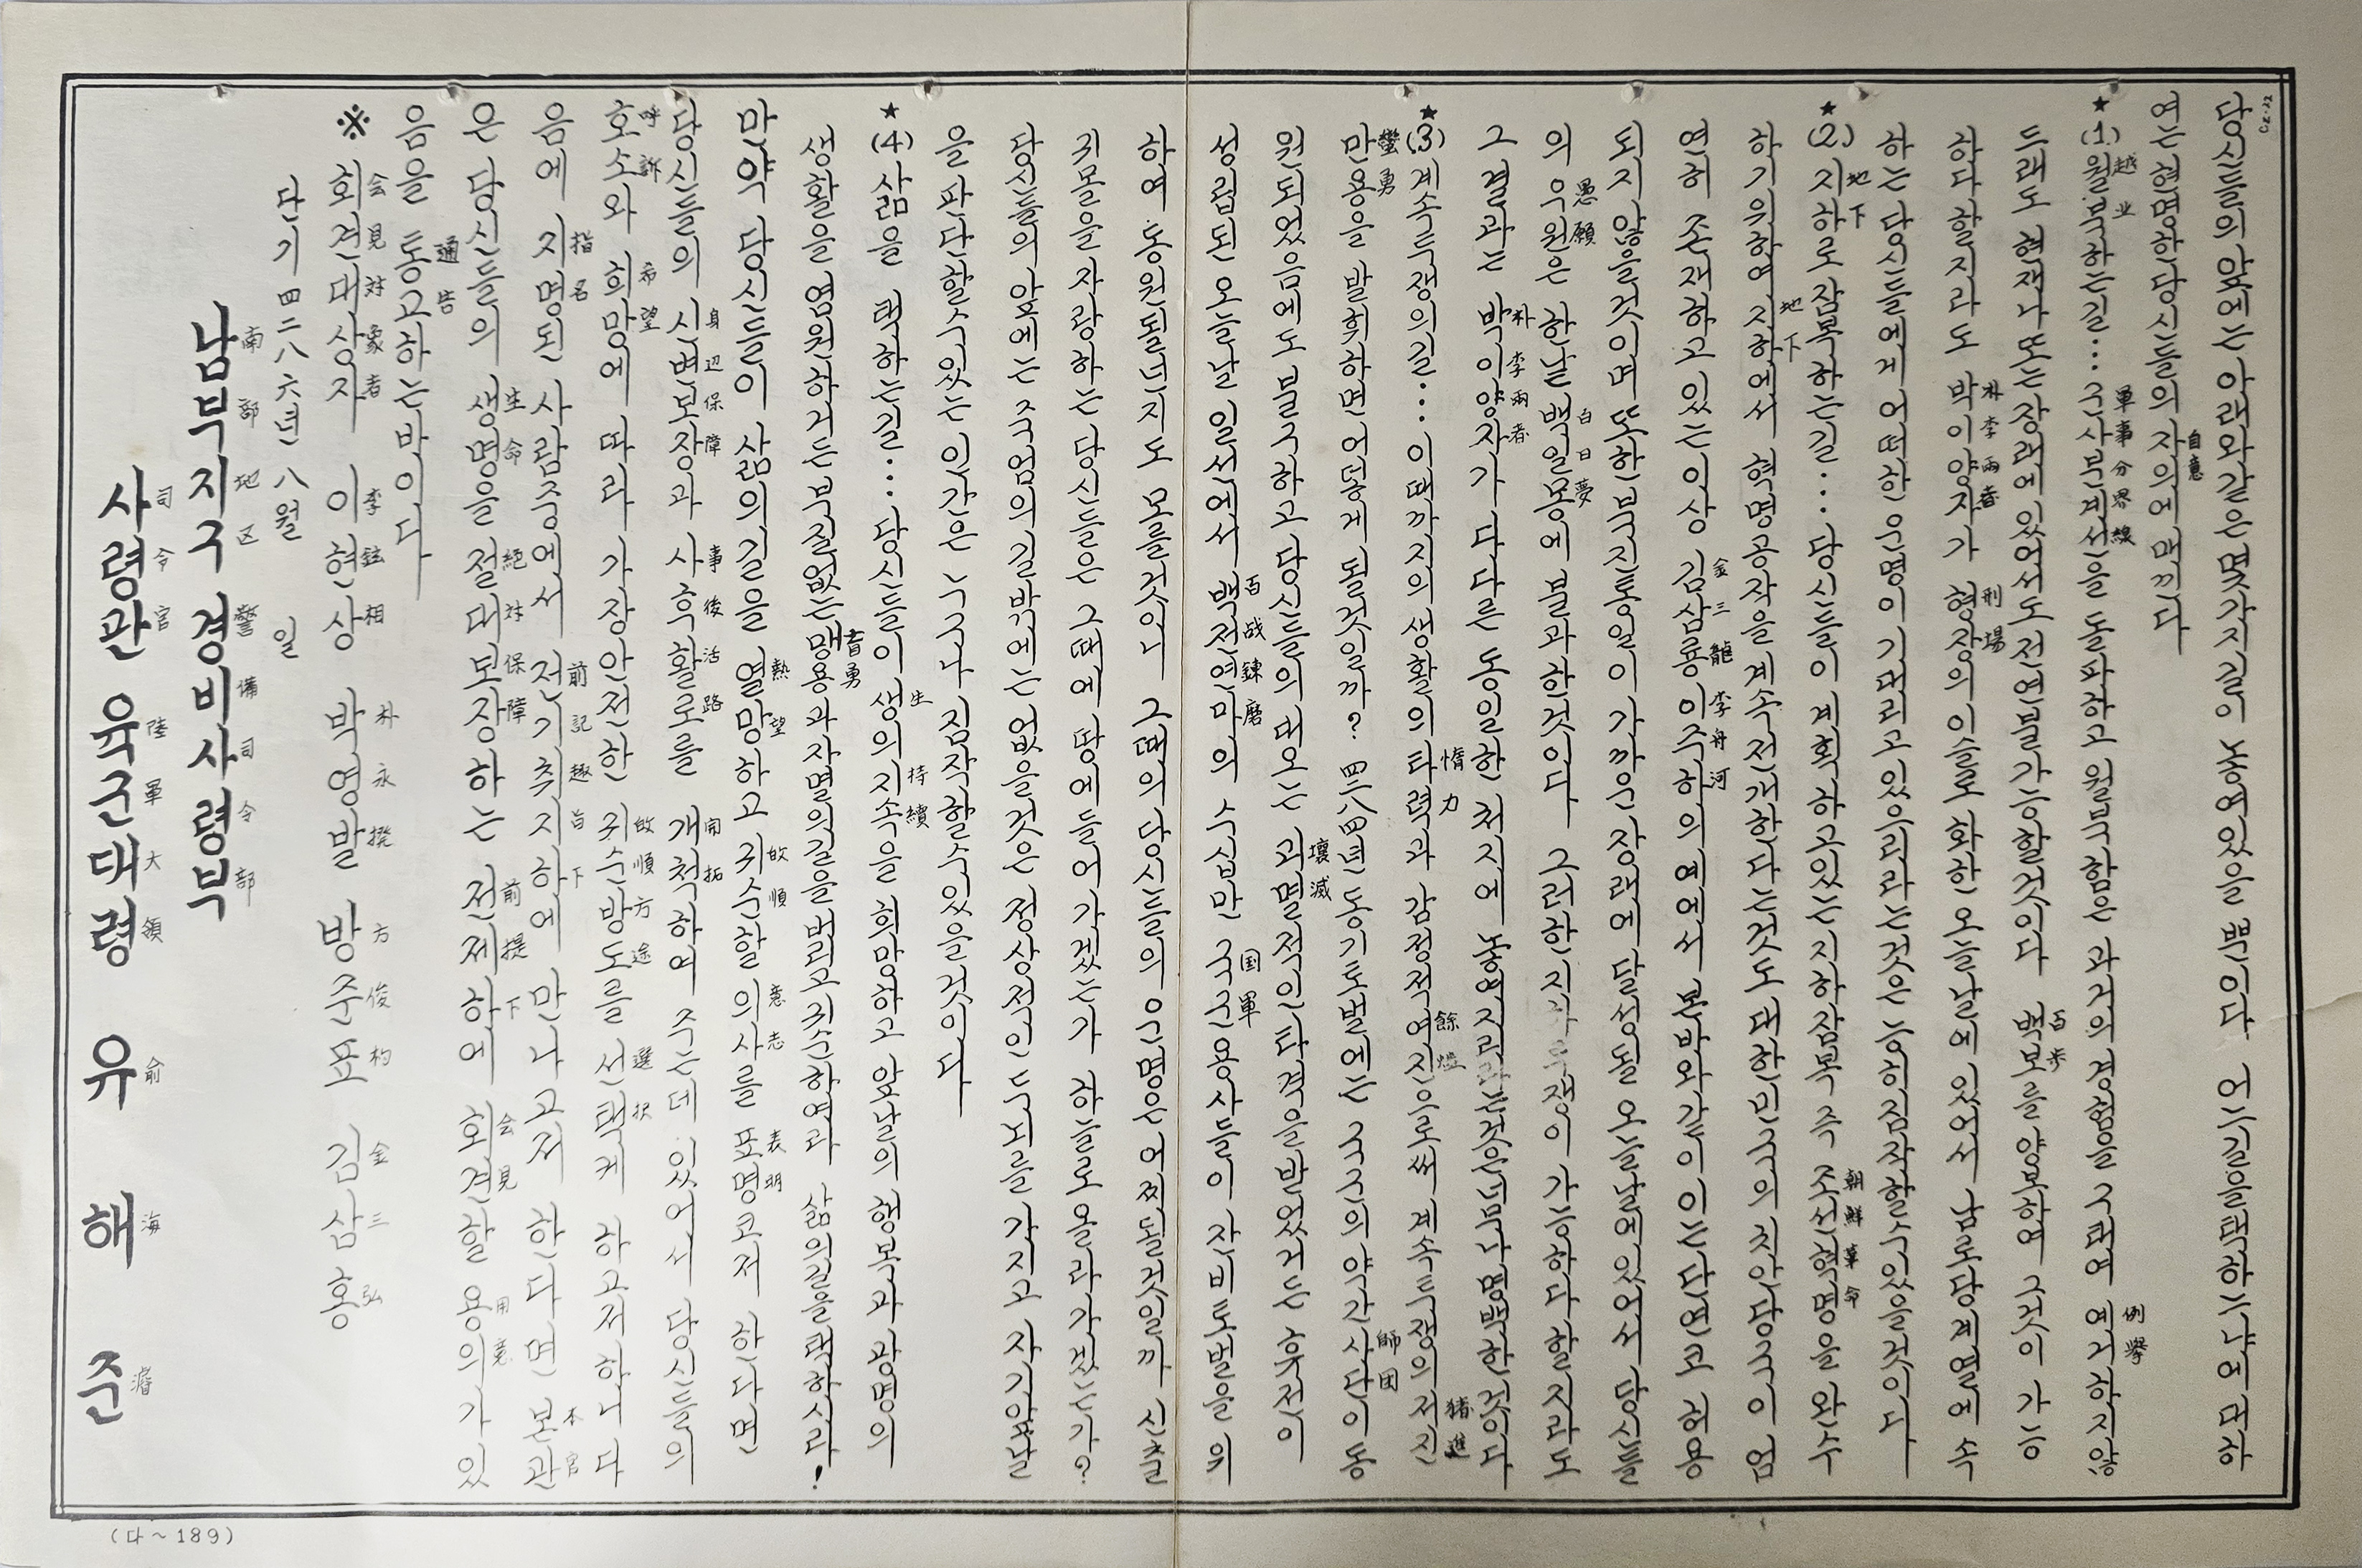 당신들의 앞에는 아래와 같은 몇가지 길이 놓여있을 뿐이다 어느 길을 택하느냐에 대하
여는 현명한 당신들의 자의에 맥낀다 自意
★(1)월북하는길… 군사분계선을 돌파하고 월북함은 과거의 경험을 구태여 예거하지 않 越北 軍事分界線 例擧
드래도 현재나 또는 장래에 있어서도 전연 불가능할것이다 백보를 양보하여 그것이 가능 百步
하다 할지라도 박이양자가 형장의 이슬로 화한 오늘날에 있어서 남로당계열에 속 朴李兩者 刑場
하는 당신들에게 어떠한 운명이 기대리고 있으리라는것은 능히 짐작할수있을것이다
★(2)지하로 잠복하는길… 당신들이 계획하고있는 지하잠복 즉 조선혁명을 완수 地下 朝鮮革命
하기 위하여 지하에서 혁명공작을 계속 전개한다는것도 대한민국의 집안당국이 엄 地下
연히 존재하고 있는이상 김삼룡 이주하의 예에서 본바와같이 이는 단연코 허용 金三龍 李舟河
되지 않을것이며 또한 남북통일이 가까운 장래에 달성될 오늘날에 있어서 당신들
의 우원은 한낱 백일몽에 불과한것이다 그러한 것이 가능하다 할지라도 愚願 白日夢
그 결과는 박이양자가 다다른 동일한 처지에 놓여지리라는것이니 더욱 명백한것이다 朴李兩者
★(3)계속 투쟁의길… 이때까지의 생활의 타력과 감정적 여진으로써 계속 투쟁의 저진 惰力 餘燼 猪進
만용을 발휘하면 어떻게 될것일까? 四二八四년 동기토벌에는 국군의 약간 사단이 동 蠻勇 師団
원되었음에도 불구하고 당신들의 대오는 괴멸적인 타격을 받었거든 하물며 휴전이 壞滅
성립된 오늘날 일선에서 백전연마의 수십만 국군용사들이 자비토벌을 위 百战鍊磨 国軍
하여 동원될런지도 모를것이니 그때의 당신들의 운명은 어찌될것일까 신출
귀몰을 자랑하는 당신들은 그때에 땅에 들어가겠는가 하늘로 올라가겠는가?
당신들의 앞에는 죽엄의 길밖에는 없을것은 정상적인 두뇌를 가지고 자기의 앞날
을 판단할수있는 인간은 누구나 짐작할수있을것이다
★(4)삶을 택하는길… 당신들이 생의 지속을 희망하고 앞날의 행복과 광명의 生 持續
생활을 염원하거든 부질없는 맹용과 자멸의길을 버리고 귀순하여라 삶의길을 택하라! 盲勇
마약 당신들이 삶의 길을 열망하고 귀순할 의사를 표명코저 하다면 熱望 皈順 意志 表明
당신들의 신변보장과 사후활로를 개척하여 주는데 있어서 당신들의 身辺保障 事後活路 開拓
호소와 희망에 따라 가장 안전한 귀순방도를 선택케 하고저하니 다 呼訴 希望 皈順方途 選択
음에 지명된 사람중에서 전기 취지하에 만나고저 하다면 본관 指名 前記趣旨下 本官
은 당신들의 생명을 절대 보장하는 전제하에 회견할 용의가 있 生命 絕対保障 前提下 会見 用意
음을 통고하는바이다 通告
※ 회견대상자 이현상 박영발 방준표 김삼홍 会見対象者 李鉉相 朴永撥 方俊杓 金三弘
단기 四二八六년 八월 일
남부지구 경비사령부 南部地区 警備司令部
사령관 육군대령 유해준 司令官 陸軍大領 俞海濬
(다~189)